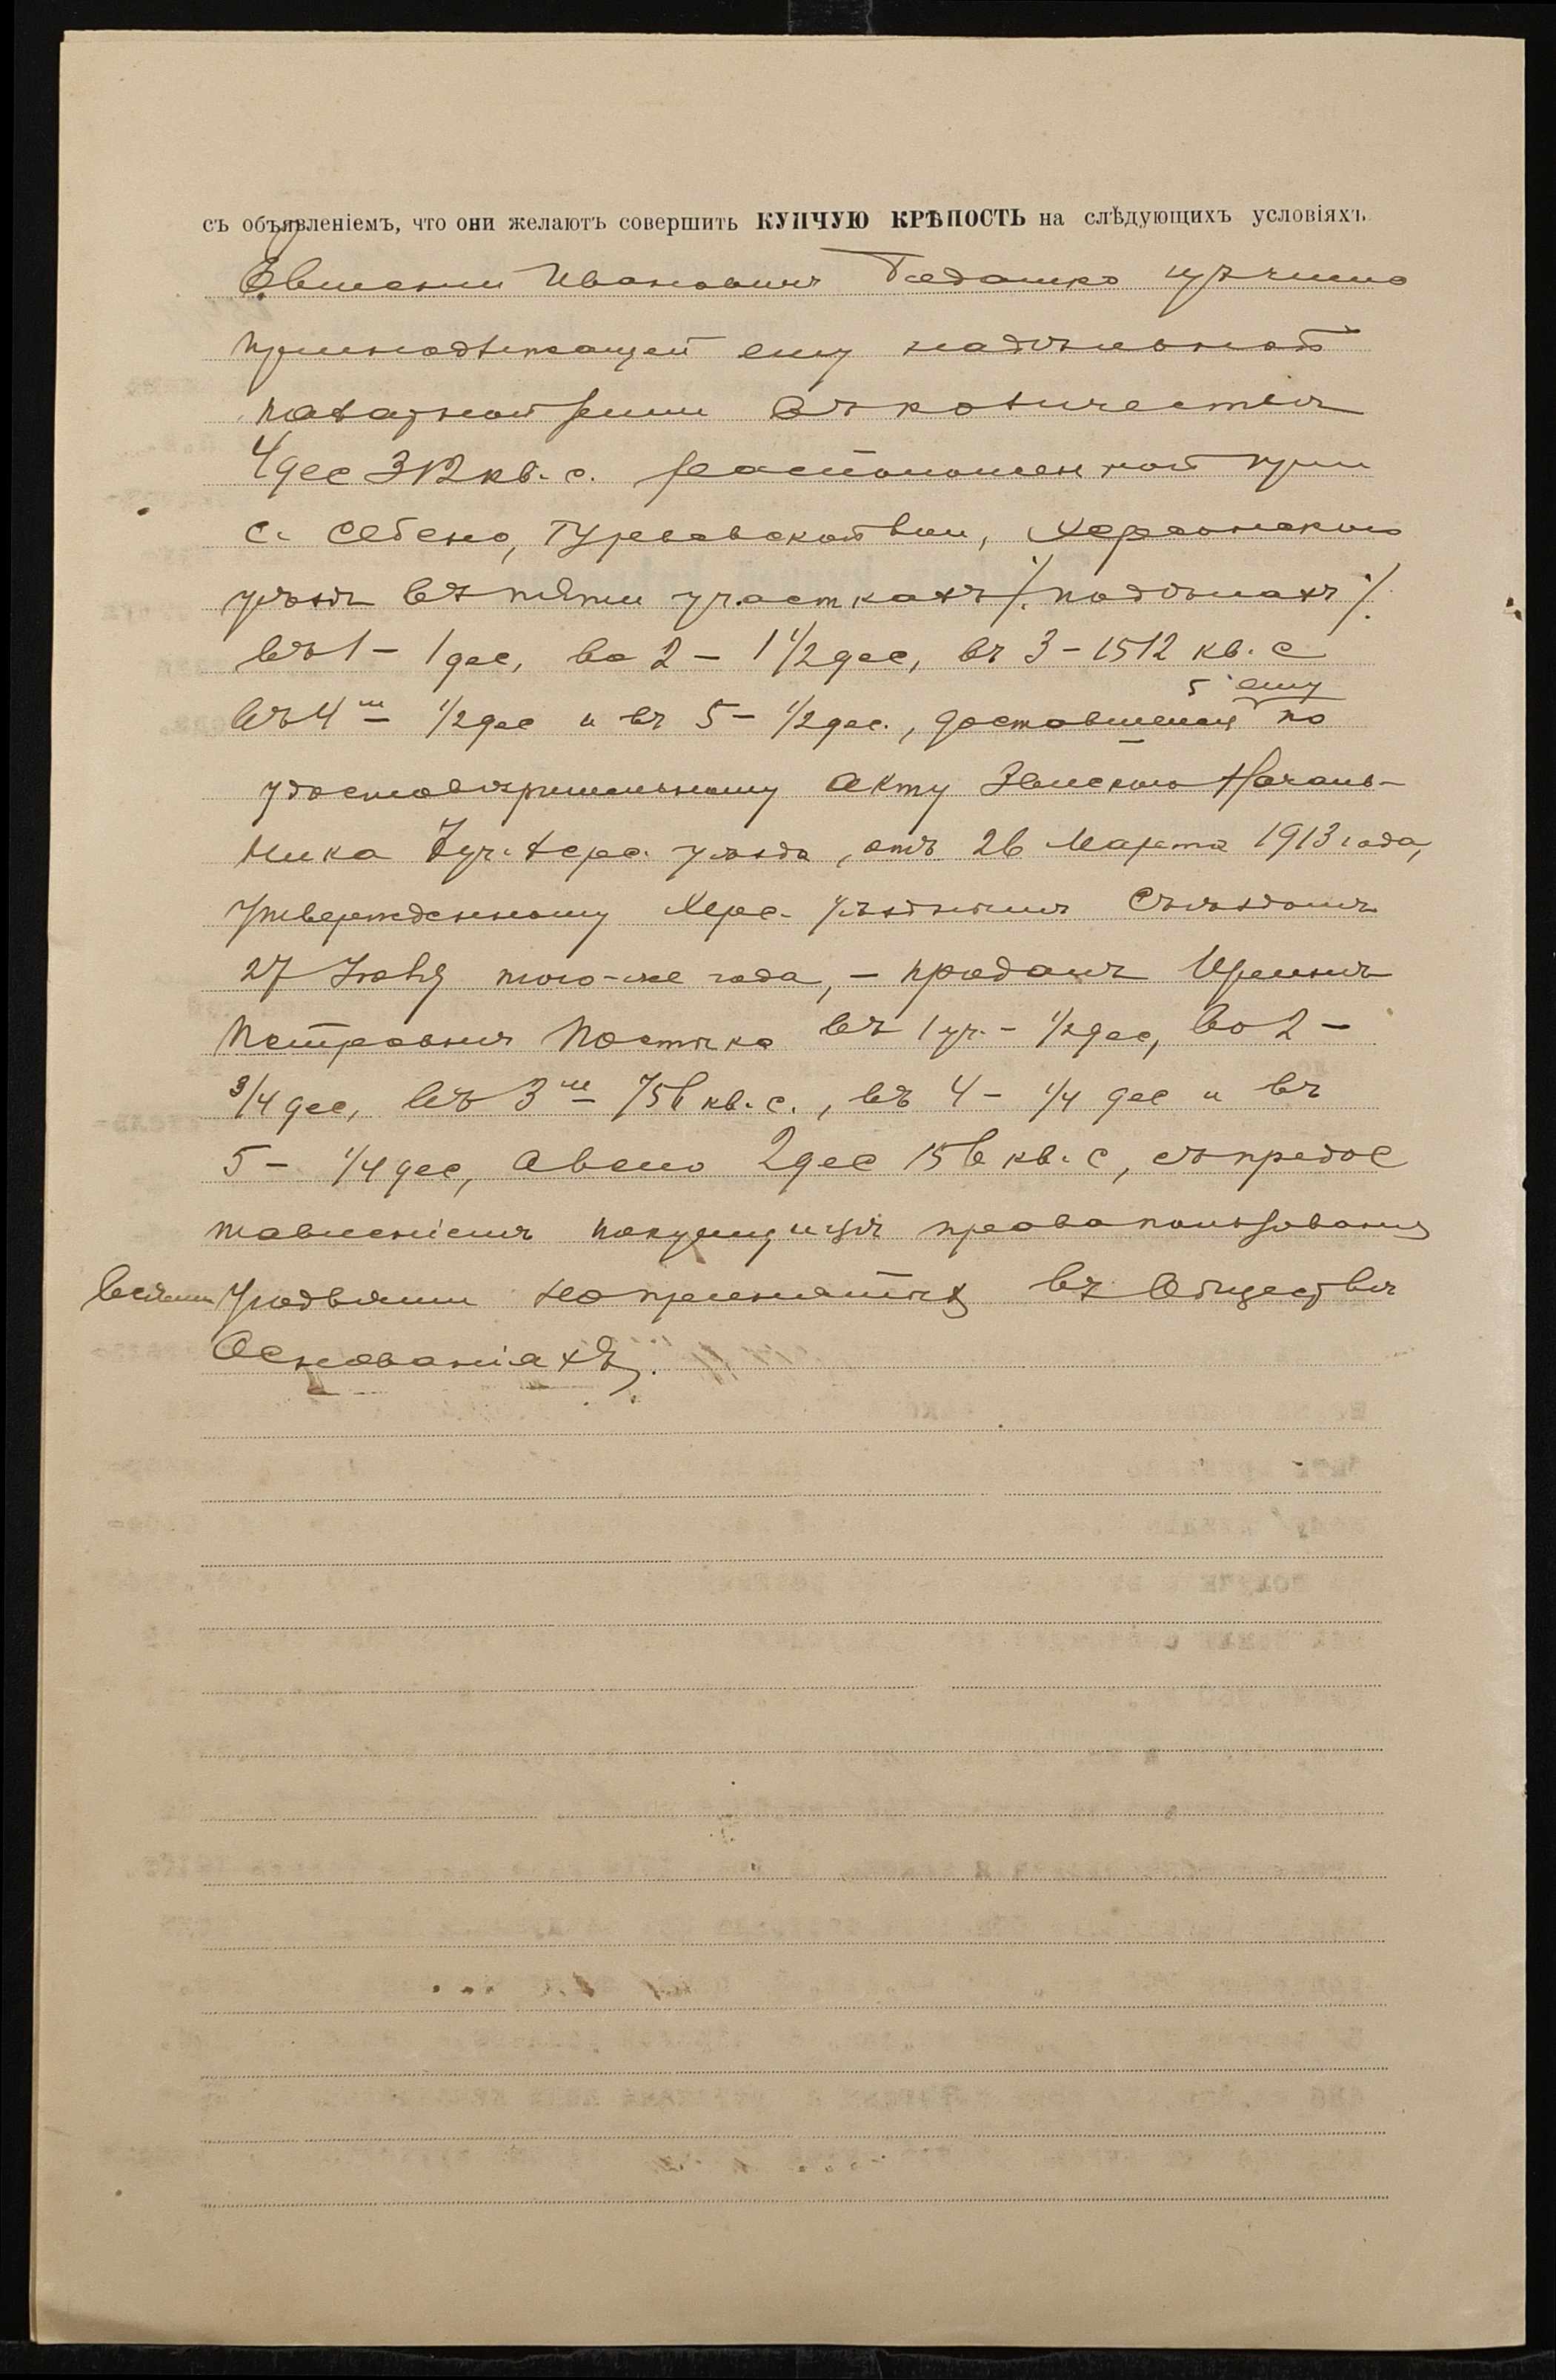 съ объявленіемъ, что они желаютъ совершить КУПЧУЮ КРѢПОСТЬ на слѣдующихъ условіяхъ
Ивановичъ изъ числа
принадлежащей ему надѣльной
пахатной земли въ количествѣ
4 дес 312 кв. с. расположенной при
с. Себено, вол, Херсонскаго
уѣзда въ пяти участкахъ /. подѣлахъ /.
въ 1 – 1 дес, во 2 – 1 1/2 дес, въ 3 – 1512 кв. с
въ 4мъ – 1/2 дес и въ 5 – 1/2 дес., доставшейся ему по
удостовѣрительному акту Земскаго Началь-
ника 7 уч. Херс. уѣзда, отъ 26 Марта 1913 года,
утвержденному Херс. Уѣзднымъ Съѣздомъ
27 Іюля того-же года, – продалъ Иринѣ
Петровнѣ въ 1 уч. – 1/2 дес, во 2 –
3/4 дес, въ 3мъ – 756 кв. с., въ 4 – 1/4 дес и въ
5 – 1/4 дес, а всего 2 дес 156 кв. с, съ предос
тавленіемъ покупщицѣ права пользованія
всѣми угодьями на принятыхъ въ Обществѣ
Основаніяхъ.